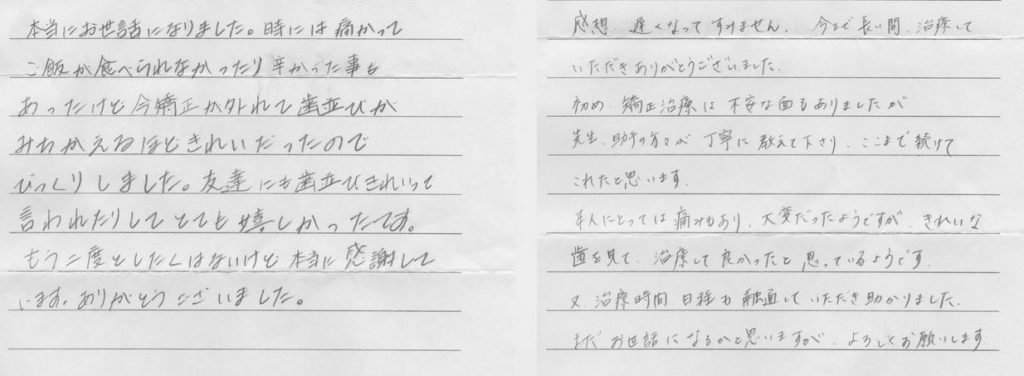 本当にお世話になりました。時には痛かって
ご飯が食べられなかったり辛かった事も
あったけど今矯正が外れて歯並びが
みちがえるほどきれいだったので
びっくりしました。友達にも歯並びきれいって
言われたりしてとても嬉しかったです。
もう二度としたくはないけど本当に感謝して
います。ありがとうございました。
感想、遅くなってすみません。今まで長い間、治療して
いただきありがとうございました。
初め、矯正治療は不安な面もありましたが
先生、助手の方々が丁寧に教えて下さり、ここまで続けて
これたと思います。
本人にとっては痛みもあり、大変だったようですが、きれいな
歯を見て、治療して良かったと思っているようです。
又、治療時間、日程も融通していただき助かりました。
まだお世話になるかと思いますが、よろしくお願いします